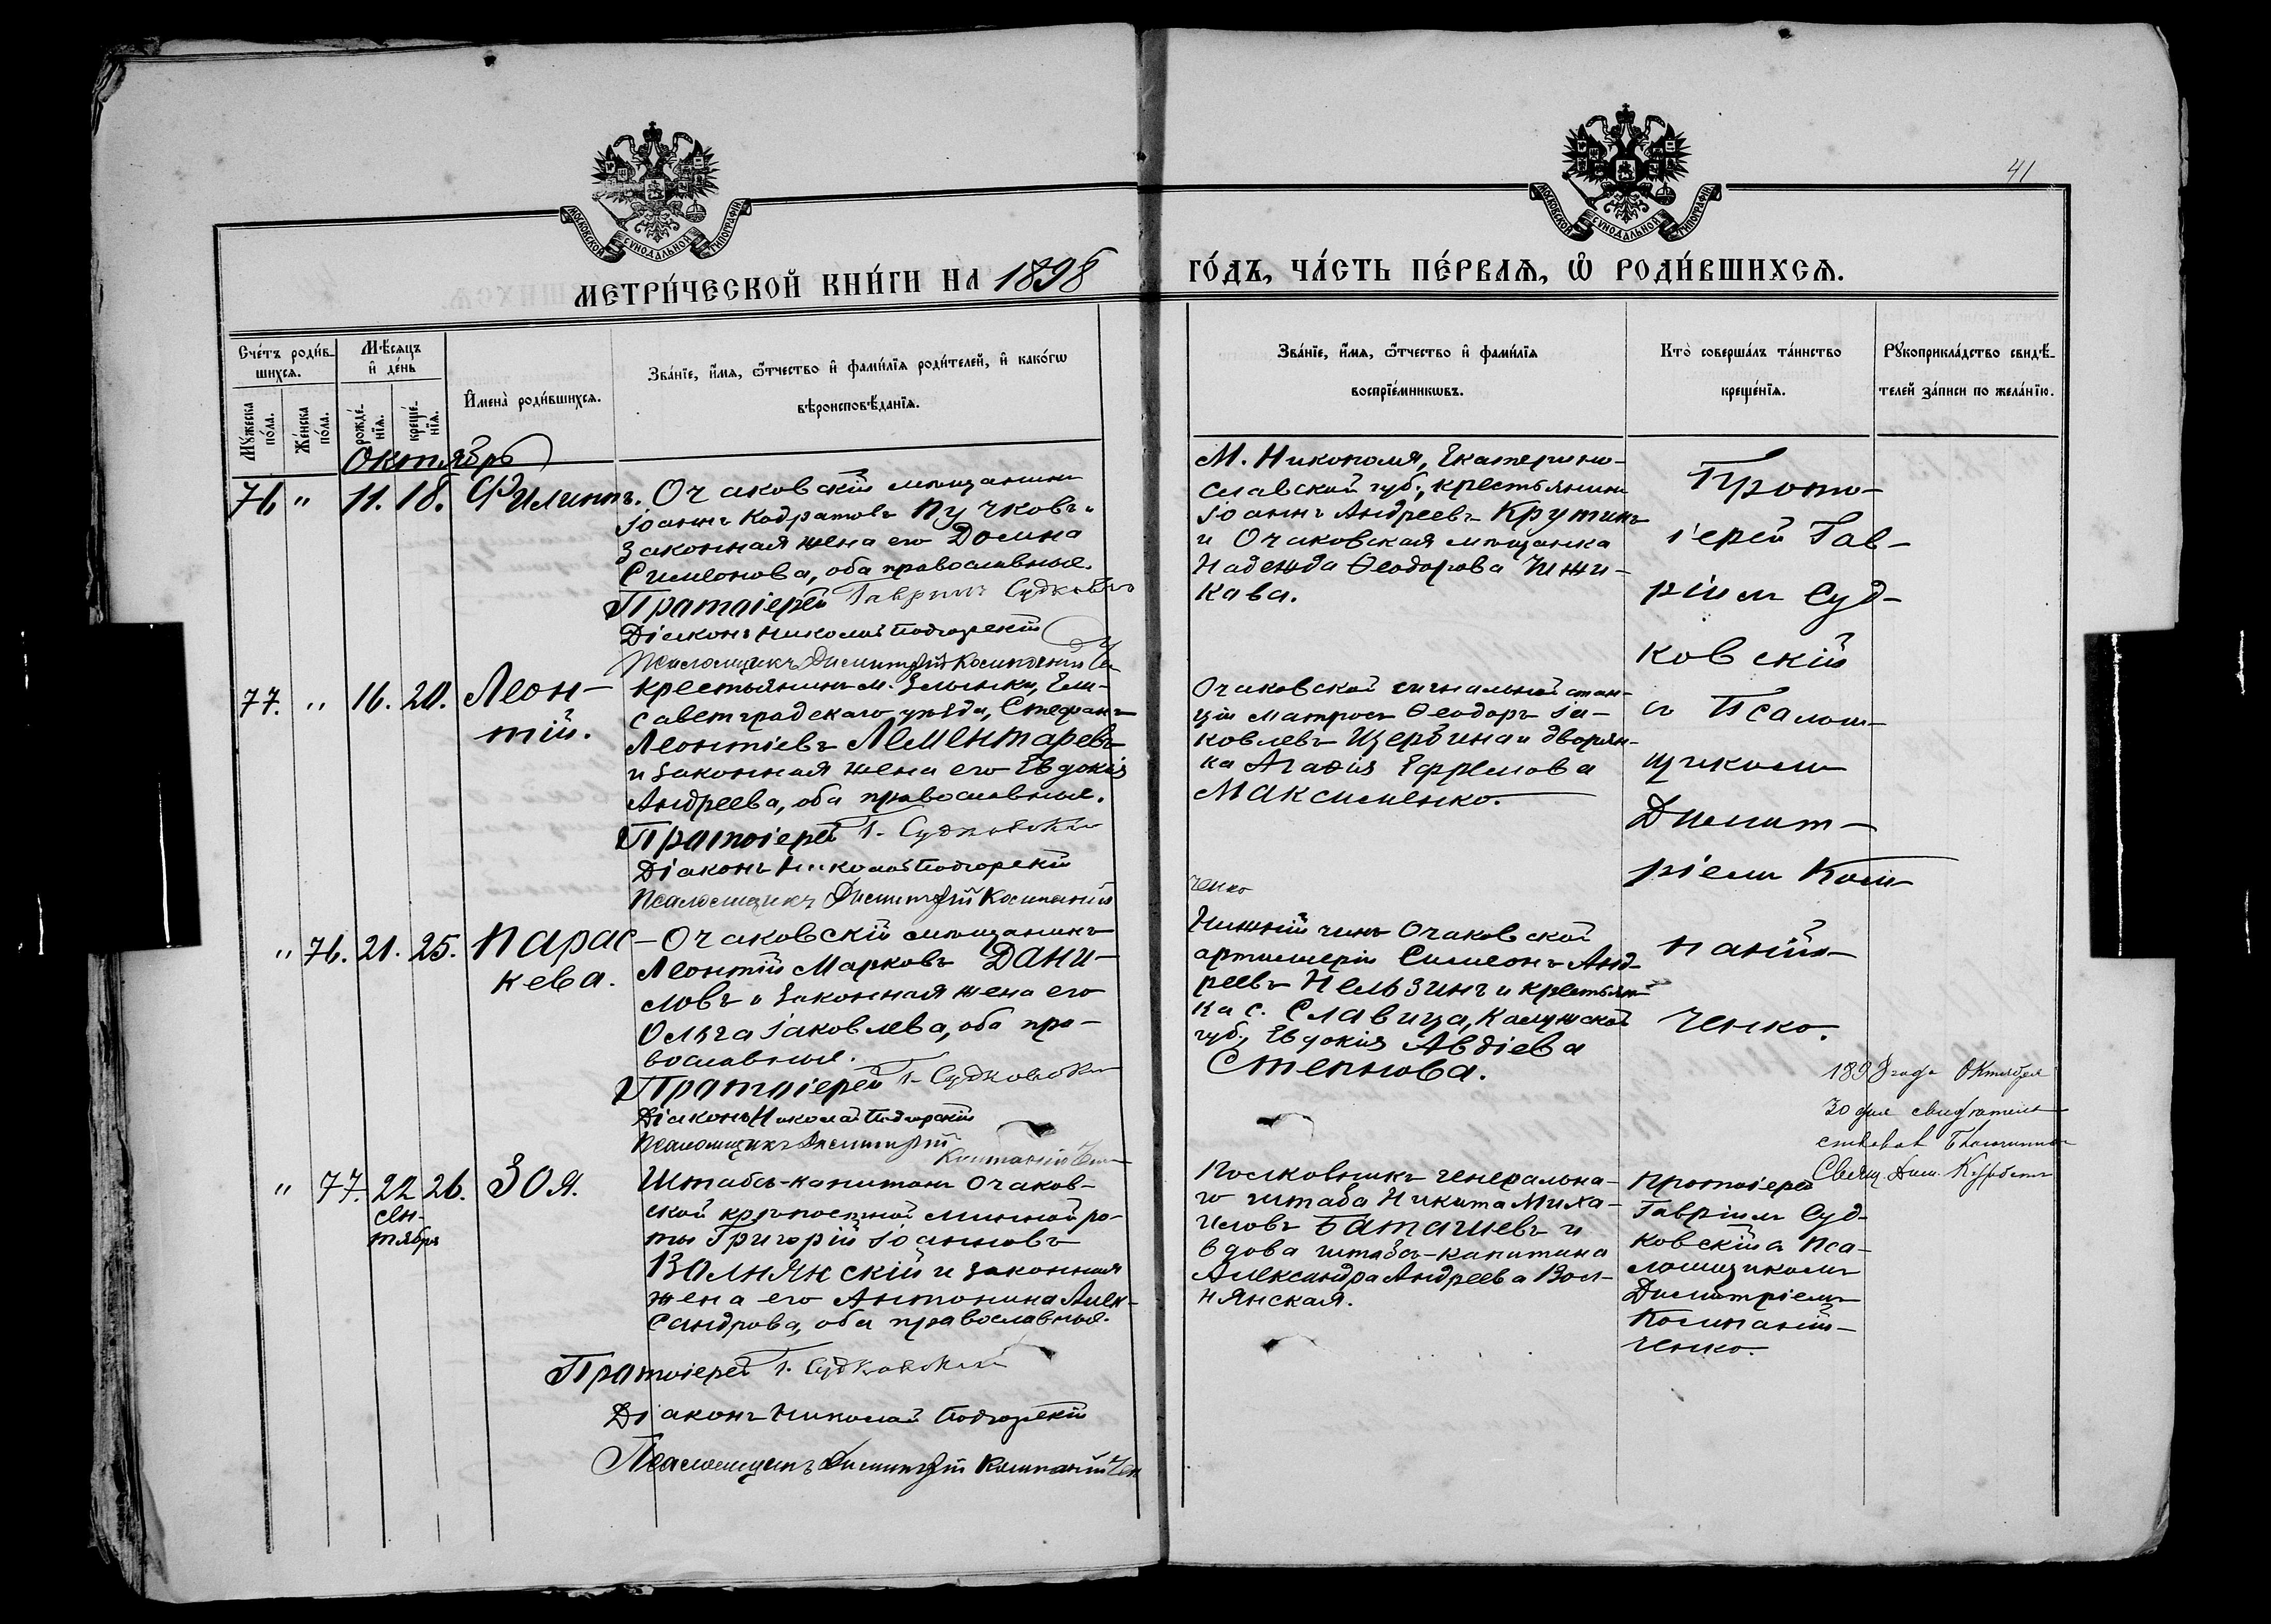 41
МОСКОВСКОЙ СУНОДАЛЬНОЙ ТИПОГРАФІИ
МОСКОВСКОЙ СУНОДАЛЬНОЙ ТИПОГРАФІИ
МЕТРИ́ЧЕСКОЙ КНИ́ГИ НА 1898
ГО́ДЪ, ЧА́СТЬ ПЕ́РВАѦ, Ѡ҆ РОДИ́ВШИХСѦ.
Сче́тъ роди́в-
шихсѧ.
Мꙋ́жеска
по́ла.
Же́нска
по́ла.
Мѣ́сѧцъ
и҆ де́нь
рожде́-
нїѧ.
креще́-
нїѧ.
И҆мена̀ роди́вшихсѧ.
Зва́нїе, и҆́мѧ, ѻ҆́тчество и҆ фами́лїѧ роди́телей, и҆ како́гѡ
вѣроисповѣ́данїѧ.
Зва́нїе, и҆́мѧ, ѻ҆́тчество и҆ фами́лїѧ
воспрїе́мникѡвъ.
Кто̀ соверша́лъ та́инство
креще́нїѧ.
Рꙋкоприкла́дство свидѣ́-
телей за́писи по жела́нїю.
Октябрь
76 " 11. 18. Филиппъ.
Очаковскій мѣщанинъ
Іоаннъ Кодратовъ Пучковъ и
законная жена его Домна
Симеонова, оба православные.
Протоіерей Гавріилъ Судковскій
Діаконъ Николай Подгорскій
Псаломщикъ Димитрій Компаній
М. Никополя, Екатерино-
славской губ., крестьянинъ
Іоаннъ Андреевъ Крутинъ
и Очаковская мѣщанка
Надежда Ѳеодорова Чижи-
кова.
Прото-
іерей Гав-
ріилъ Суд-
ковскій
съ Псалом-
щикомъ
Димит-
ріемъ Ком-
паній-
ченко.
77. " 16. 20. Леон-
тій.
Крестьянинъ м. Злынки, Ели-
саветградскаго уѣзда, Стефанъ
Леонтіевъ Лементаревъ
и законная жена его Евдокія
Андреева, оба православные.
Протоіерей Г. Судковскій
Діаконъ Николай Подгорскій
Псаломщикъ Димитрій Компаній
ченко
Очаковской сигнальной стан-
ціи матросъ Ѳеодоръ Іа-
ковлевъ Щербина и дворян-
ка Агаѳія Ефремова
Максименко.
" 76. 21. 25. Парас-
кева.
Очаковскій мѣщанинъ
Леонтій Марковъ Дани-
ловъ и законная жена его
Ольга Іаковлева, оба пра-
вославные.
Протоіерей Г. Судковскій
Діаконъ Николай Подгорскій
Псаломщикъ Димитрій
Компаній
Нижній чинъ Очаковской
артиллеріи Симеонъ Анд-
реевъ Нельзинъ и крестьян-
ка с. Славица, Калужской
губ., Евдокія Авдіева
Степнова.
1898 года Октября
30 дня свидѣтель-
ствовалъ Благочинный
Свящ.
" 77. 22 26. Зоя.
сен-
тября
Штабсъ-капитанъ Очаков-
ской крѣпостной минной ро-
ты Григорій Іоанновъ
Волнянскій и законная
жена его Антонина Алек-
сандрова, оба православные.
Протоіерей Г. Судковскій
Діаконъ Николай Подгорскій
Псаломщикъ Димитрій Компанійчен
Полковникъ генеральна-
го штаба Никита Миха-
иловъ Батагиевъ и
вдова штабсъ-капитана
Александра Андреева Вол-
нянская.
Протоіерей
Гавріилъ Суд-
ковскій съ Пса-
ломщикомъ
Димитріемъ
Компаній-
ченко.